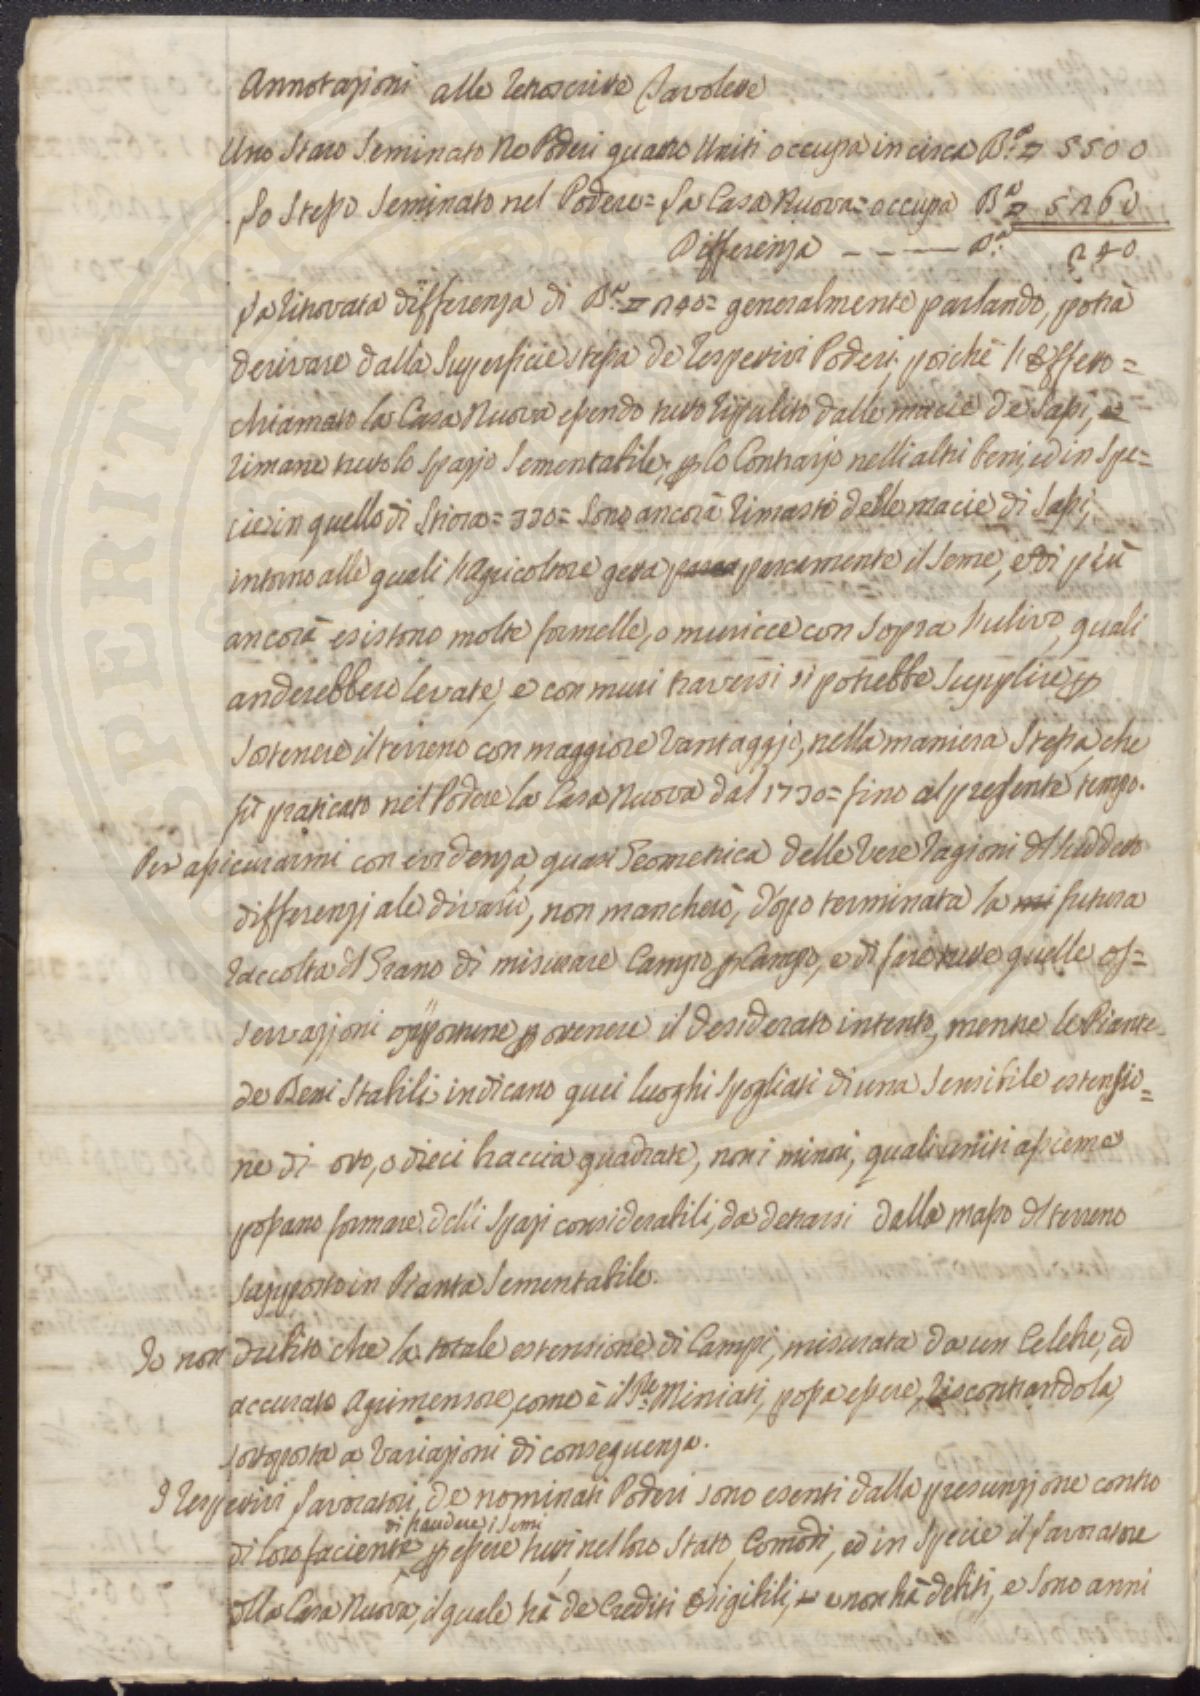 Annotazioni alle retroscritte Tavolette
Uno Staro Seminato ne Poderi quattro Uniti occupa in circa B.ª = 5500
Lo Stesso Seminato nel Podere = La Casa Nuova = occupa B.ª = 5260
Differenza - - - — B.ª 240
La ritrovata differenza di B.ª = 240 = generalmente parlando, potrà
derivare dalla Superficie stessa de respettivi Poderi, poichè l'Effetto =
chiamato la Casa Nuova essendo tutto ripulito dalle macie de Sassi, e
rimane tutto lo spazzio Sementabile; p lo Contrario nelli altri beni, ed in Spe=
cie in quello di Stiora = 330 = Sono ancora rimasti delle macie di Sassi,
intorno alle quali l'Agricoltore getta parcamente il Seme, e di più
ancora esistono molte formelle, o muricce con Sopra l'ulivo, quali
anderebbere levate, e con muri traversi si potrebbe Supplire p
Sostenere il terreno con maggiore Vantaggio, nella maniera Stessa, che
fù praticato nel Podere la Casa Nuova dal 1730 = fino al presente tempo.
Per assicurarmi con evidenza quasi Geometrica delle Vere ragioni del suddetto
differenziale divario, non mancherò, dopo terminata la futura
raccolta del Grano di misurare Campo p Campo, e di fare tutte quelle os=
servazzioni opportune p ottenere il desiderato intento, mentre le Piante
de Beni Stabili indicano quei luoghi Spogliati di una Sensibile estensio=
ne di otto, o dieci braccia quadrate, non i minori, quali uniti assieme
possano formare delli Spazi considerabili, da detrarsi dalla massa del terreno
supposto in Pianta Sementabile.
Io non dubito che la totale estensione di Campi, misurata da un Celebre, ed
accurato Agrimensore, come è il Sre. Miniati, possa essere, riscontrandola,
sottoposta a Variazioni di conseguenza.
I respettivi Lavoratori, de nominati Poderi sono esenti dalla presunzione contro
di fraudare i Semi
di loro faciente, p essere tutti nel loro Stato, Comodi, ed in Specie il Lavoratore
della Casa Nuova, il quale hà de Crediti Esigibili, e non hà debiti, e Sono anni